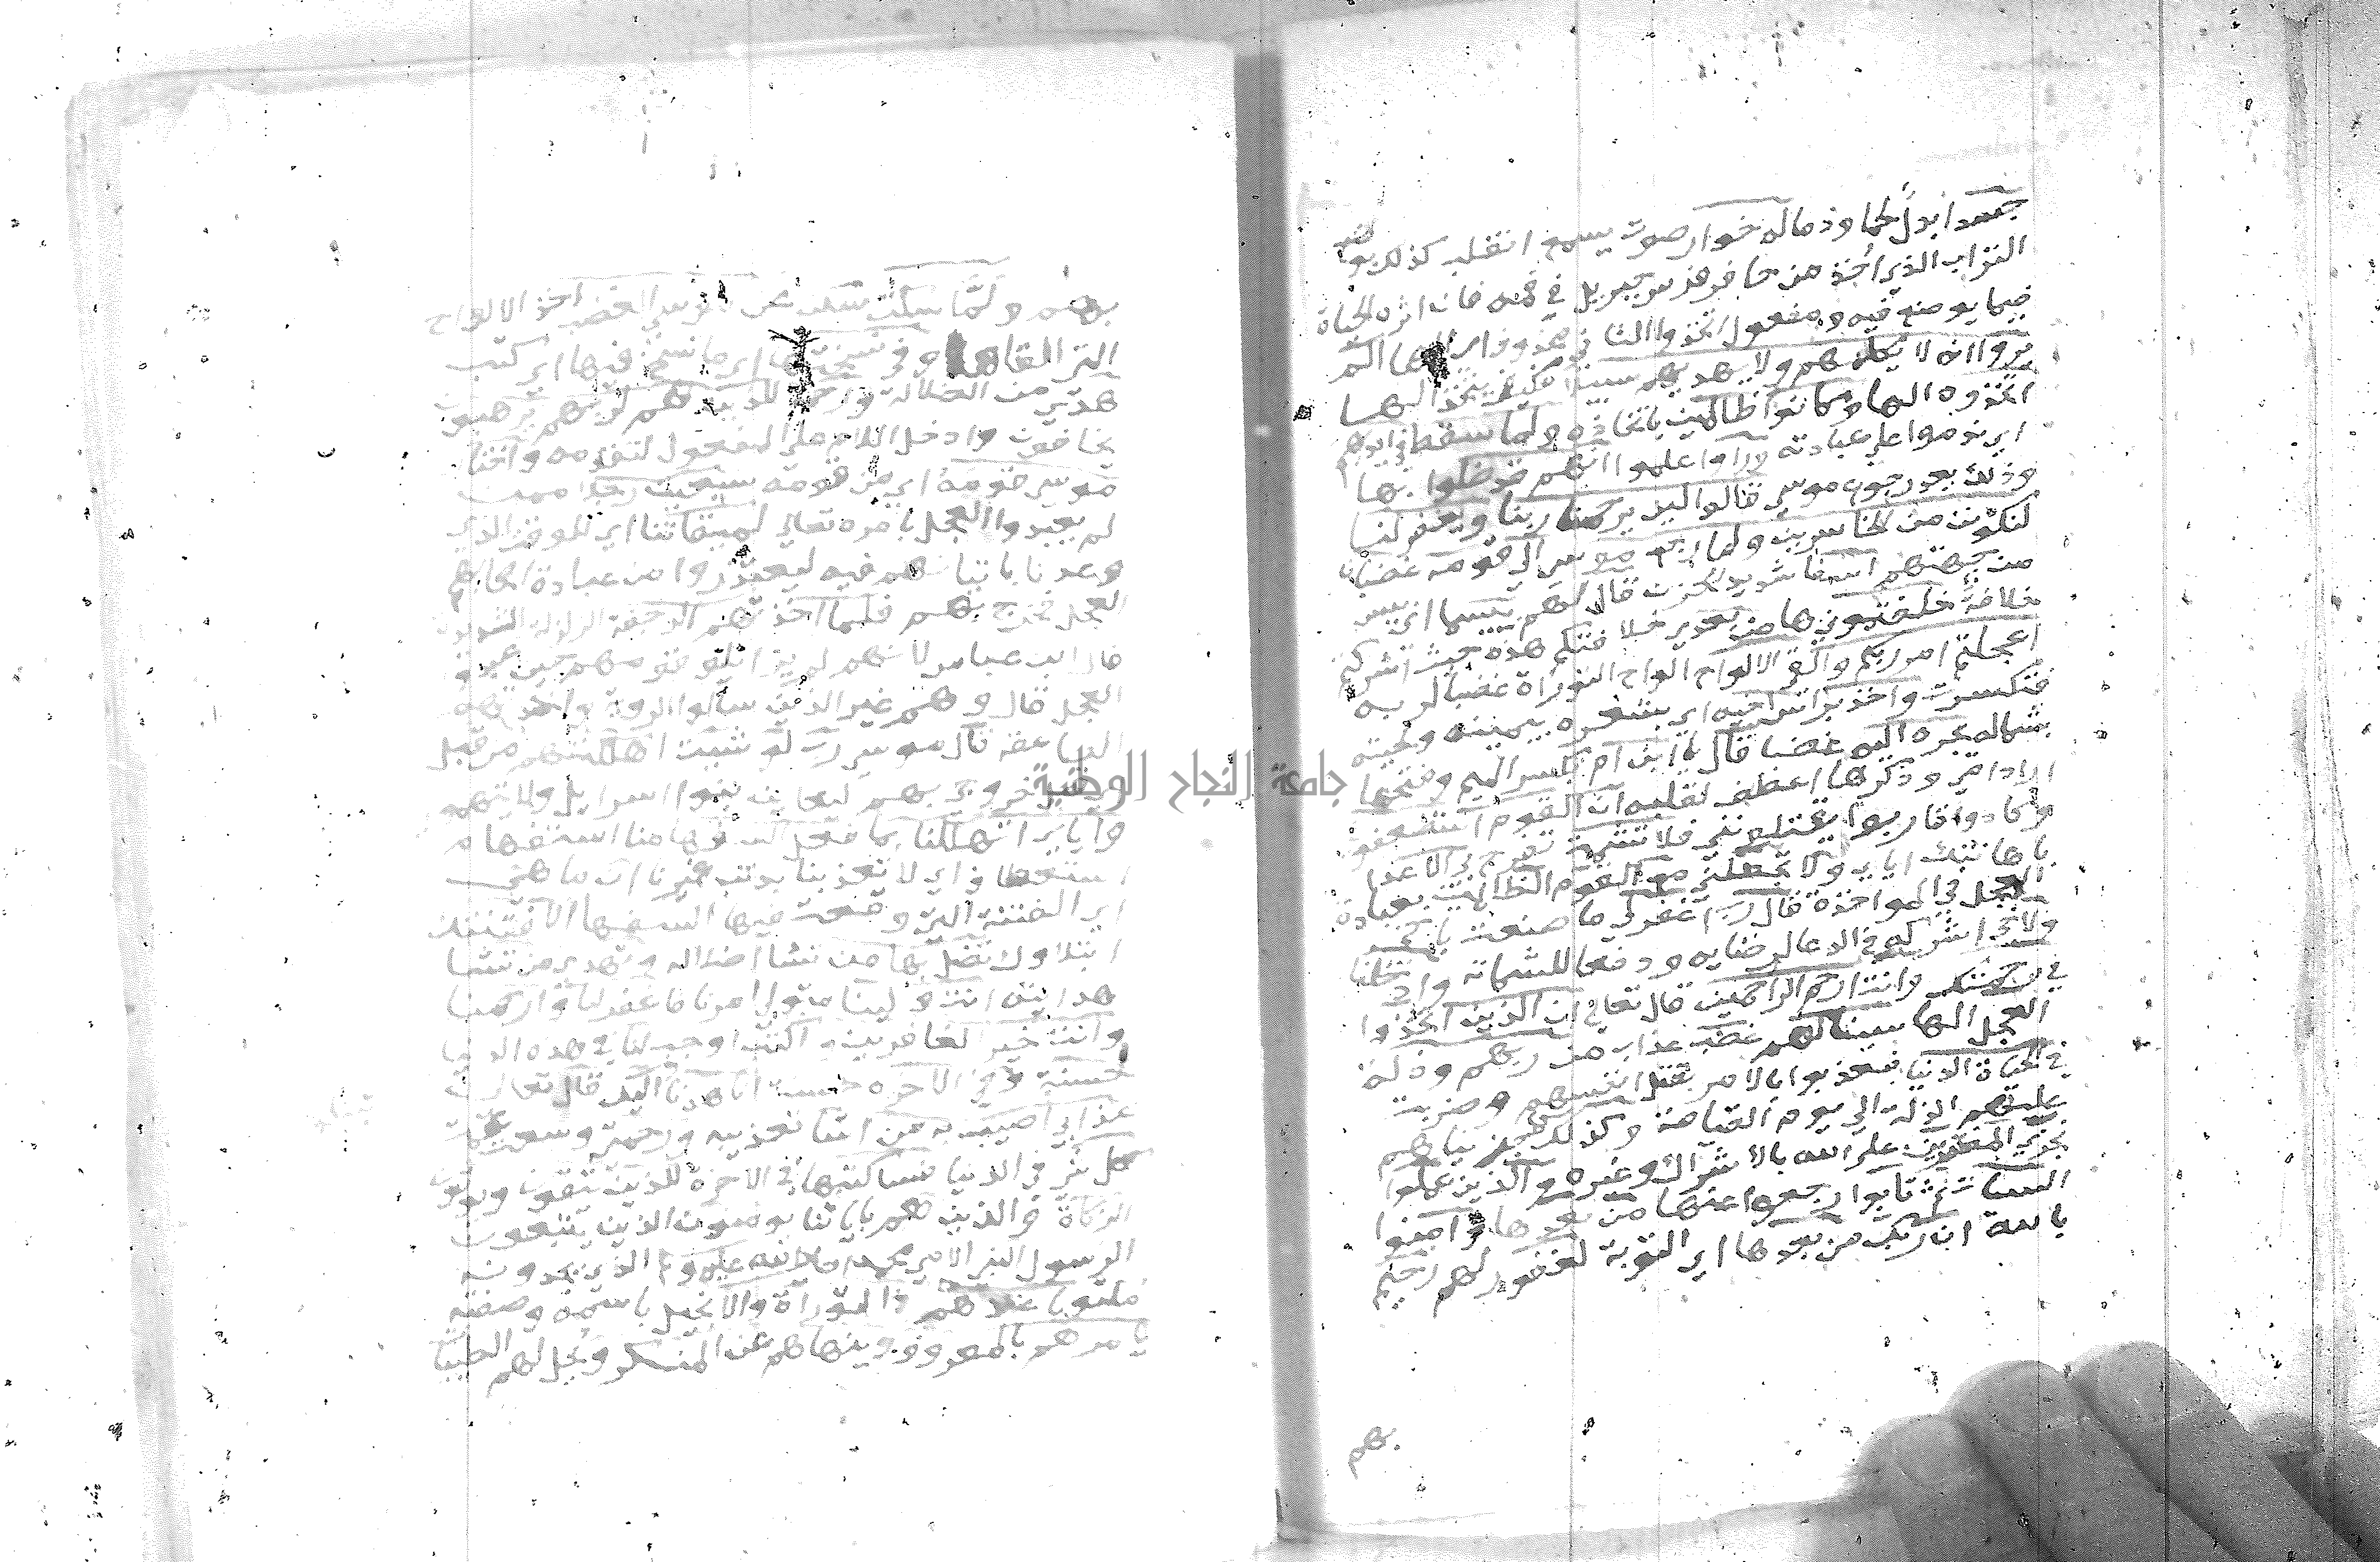 جسدا بدل لحما ودما له خوار صوت يسمع انقلب كذلك بوضع
التراب الذي أخذ من حافر فرس جبريل في فمه فان اثره الحياة
فيما يوضع فيه ومفعول اتخذوا الثاني محذوف اي الها الم
يروا انه لا يكلمهم ولا يهديهم سبيلا فكيف يتخذ الها
اتخذوه الها وكانوا ظالمين باتخاذه ولما سقط في ايديهم
اي ندموا على عبادته وراوا علموا انهم قد ضلوا بها
وذلك بعد رجوع موسى قالوا لين لم يرحمنا ربنا ويغفر لنا
لنكونن من الخاسرين ولما رجع موسى الى قومه غضبان
من جهتهم اسفا شديد الحزن قال لهم بيسما اي بيس
خلافة خلفتموني ها من بعدي خلافتكم هذه حيث اشركتم
اعجلتم امر ربكم والقى الالواح الواح التوراة غضبا لربه
فتكسرت واخذ براس اخيه اي بشعره بيمينه ولحيته
بشماله يجره اليه غضبا قال يا ابن ام بكسر الميم وفتحها
اراد امي وذكرها اعطف لقلبه ان القوم استضعفوني
وكادوا قاربوا يقتلونني فلا تشمت تفرح بي الاعدا
باهانتك اياي ولا تجعلني مع القوم الظالمين بعبادة
العجل في المواخذة قال رب اغفر لي ما صنعت باخي
ولاخي اشركه في الدعا ارضا له ودفعا للشماتة وادخلنا
في رحمتك وانت ارحم الراحمين قال تعالى ان الذين اتخذوا
العجل الها سينالهم غضب عذاب من ربهم وذلة
في الحياة الدنيا فعذبوا بالامر بقتل انفسهم وضربت
عليهم الذلة الى يوم القيامة وكذلك كما جزيناهم
نجزي المفترين على الله بالاشراك وغيره والذين عملوا
السيات ثم تابوا رجعوا عنها من بعدها وامنوا
بالله ان ربك من بعدها اي التوبة لغفور لهم رحيم
بهم
بهم ولما سكت سكن عن موسى الغضب اخذ الالواح
التي القاها وفي نسختها اي ما نسخ فيها اي كتب
هدى من الضلالة ورحمة للذين هم لربهم يرهبون
يخافون وادخل اللام على المفعول لتقدمه واختار
موسى قومه اي من قومه سبعين رجلا ممن
لم يعبدوا العجل بامره تعالى لميقاتنا اي للوقت الذي
وعدناه باتيانهم فيه ليعتذروا من عبادة اصحابهم
العجل فخرج بهم فلما اخذتهم الرجفة الزلزلة الشديدة
قال ابن عباس لانهم لم يزايلوا قومهم حين عبدوا
العجل قال وهم غير الذين سالوا الروية واخذتهم
الصاعقة قال موسى رب لو شيت اهلكتهم من قبل
اي قبل خروجي بهم ليعاين بنوا اسرايل ولا يتهموني
واياي اتهلكنا بما فعل السفها منا استفهام
استعطاف اي لا تعذبنا بذنب غيرنا ان ما هي
اي الفتنة التي وقعت فيها السفها الا فتنتك
ابتلاوك تضل بها من تشا اضلاله وتهدي من تشا
هدايته انت ولينا متولي امرنا فاغفر لنا وارحمنا
وانت خير الغافرين واكتب اوجب لنا في هذه الدنيا
حسنة وفي الاخرة حسنة انا هدنا اليك قال تعالى
عذابي اصيب به من اشا تعذيبه ورحمتي وسعت
كل شي في الدنيا فساكتبها في الاخرة للذين يتقون ويوتون
الزكاة والذين هم باياتنا يومنون الذين يتبعون
الرسول النبي الامي محمد صلى الله عليه وسلم الذي يجدونه
مكتوبا عندهم في التوراة والانجيل باسمه وصفته
يامرهم بالمعروف وينهاهم عن المنكر ويحل لهم الطيبات
جامعة النجاح الوطنية